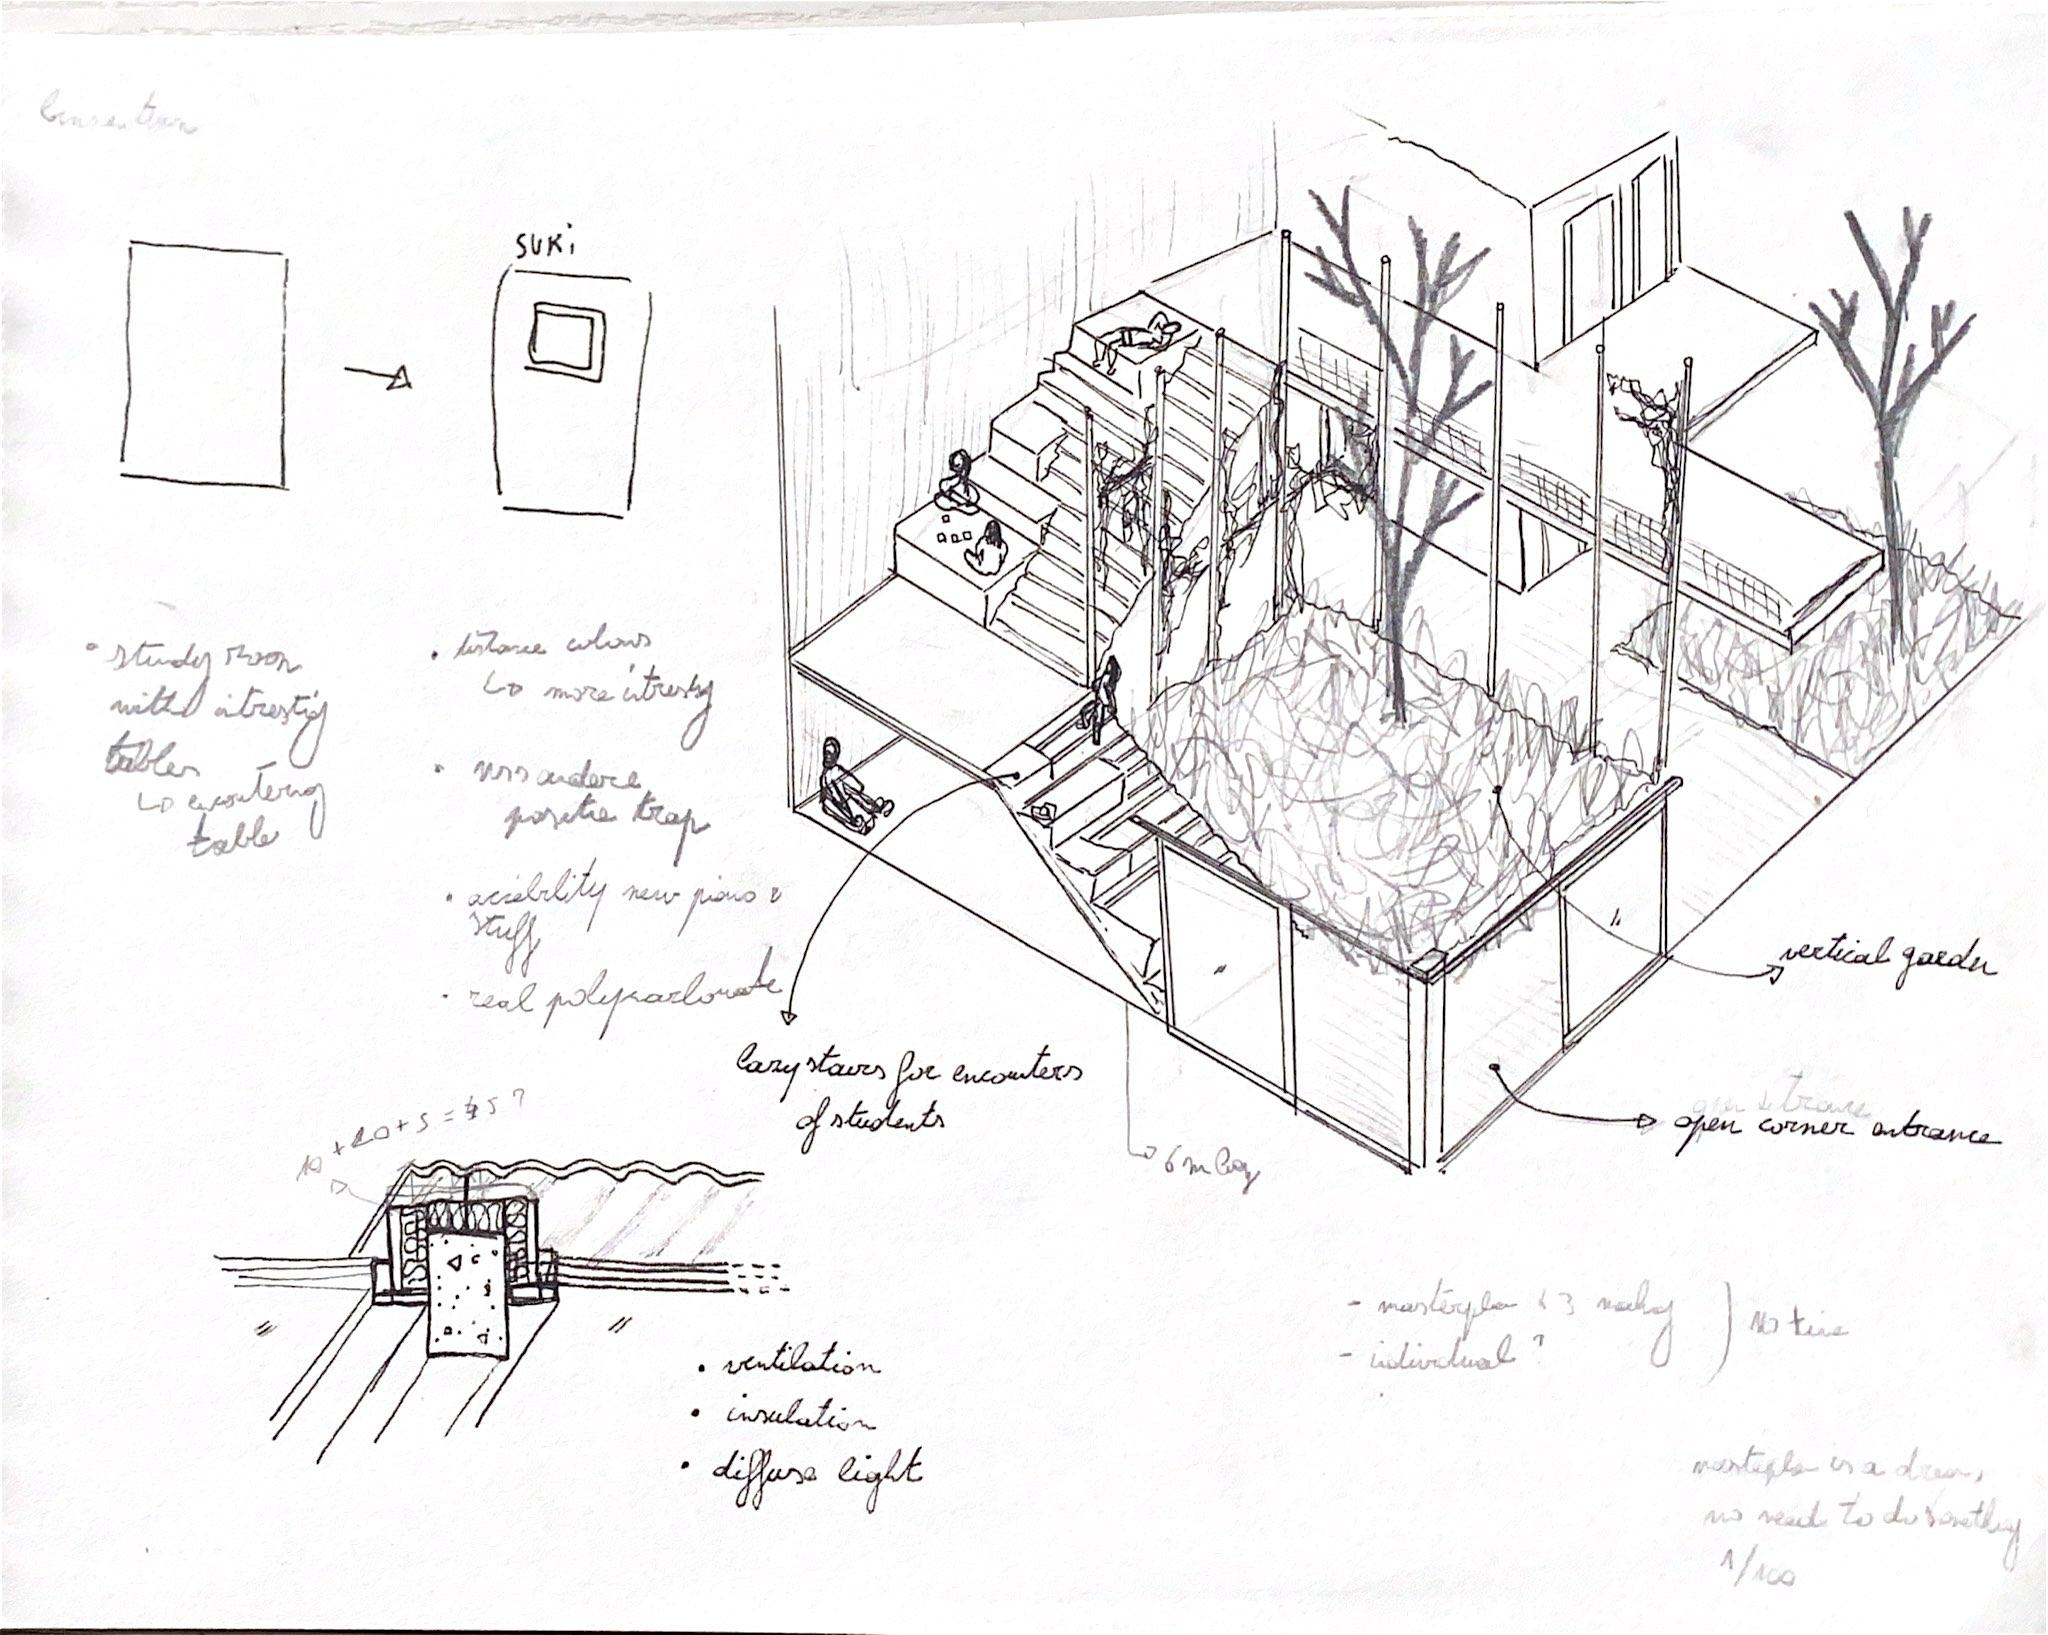 SUKi
• study room
with intresting
tables
↳ encoutering
table
• distance colours
↳ more intresting
• andere
positie trap
• new &
stuff
• real polykarbonate
lazy stairs for encouters
of students
vertical garden
open entrance
open corner entrance
6 m
10 + 20 + 5 = 45 ?
• ventilation
• insulation
• diffuse light
- masterplan 3
- individual ?
no time
masterplan is a dream,
no need to do something
1/100